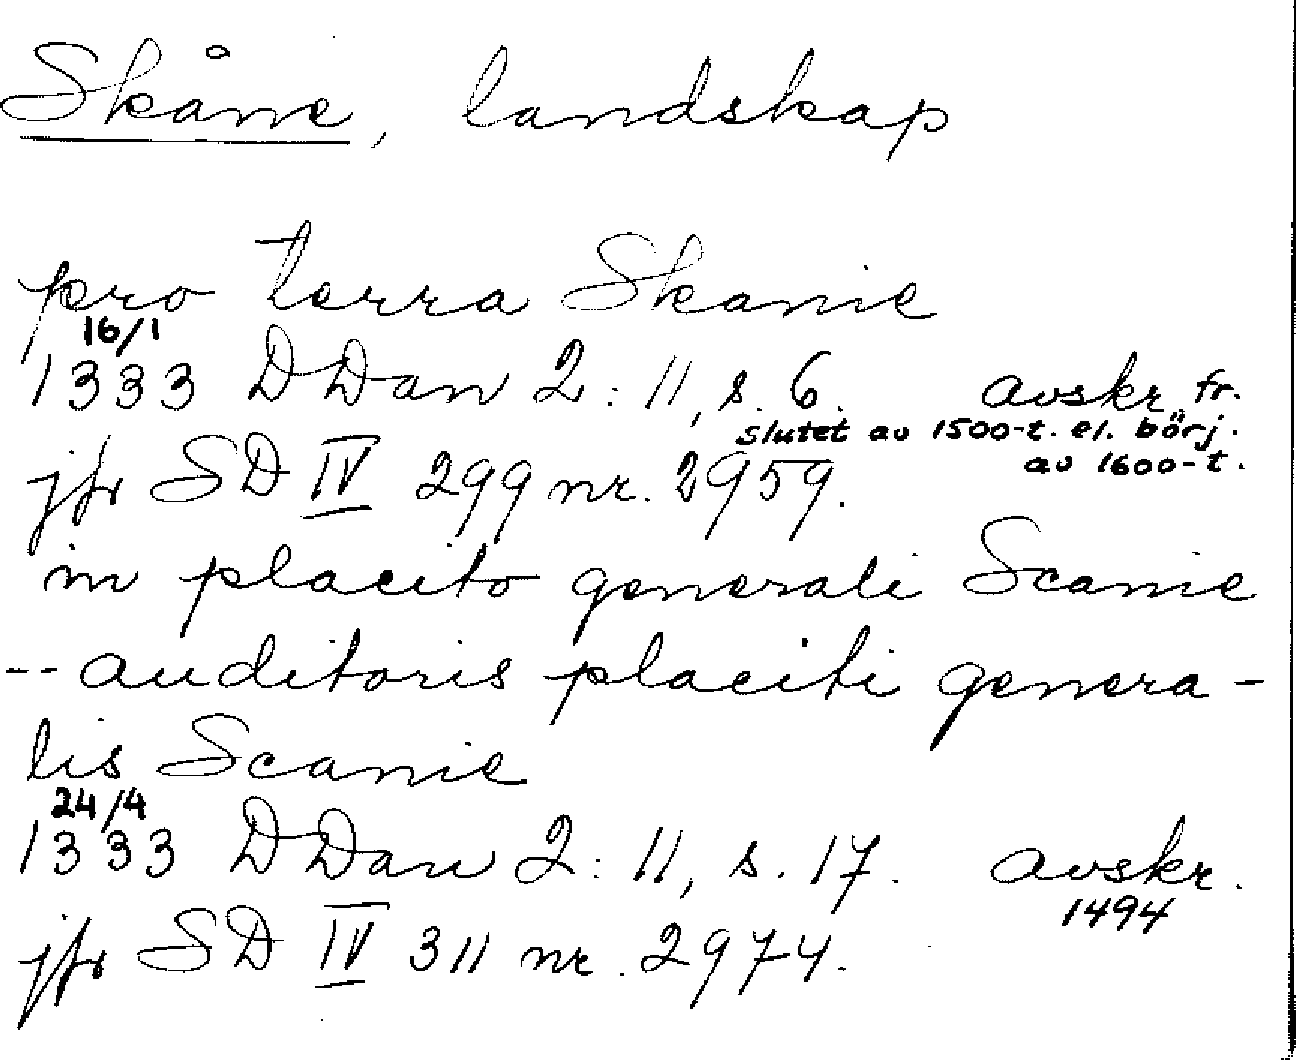 Skåne, landskap
pro terra Skanie
16/1
1333 DDan 2:11, s. 6. avskr. fr.
slutet av 1500-t. el. börj.
av 1600-t.
jfr SD IV 299 nr. 2959.
in placito generali Scanie
-- auditoris placiti genera-
lis Scanie
24/4
1333 DDan 2:11, s. 17. avskr.
1494
jfr SD IV 311 nr. 2974.